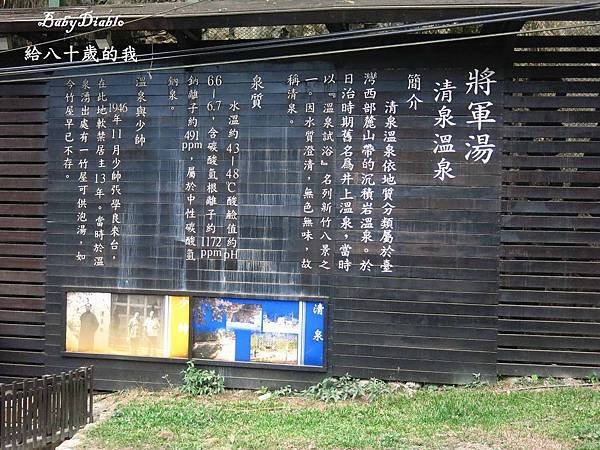 BabyDiablo
給八十歲的我
將軍湯
清泉溫泉
簡介
清泉溫泉依地質分類屬於臺
灣西部麓山帶的沉積岩溫泉。於
日治時期舊名為井上溫泉，當時
以『溫泉試浴』名列新竹八景之
一。因水質澄清，無色無味，故
稱清泉。
泉質
水溫約43－48℃酸鹼值約pH
6.6－6.7，含碳酸氫根離子約1172ppm
鈉離子約491ppm，屬於中性碳酸氫
鈉泉。
溫泉與少帥
1946年11月少帥張學良來台，
在此地軟禁居主13年。當時於溫
泉湧出處有一竹屋可供泡湯，如
今竹屋早已不存。
清泉